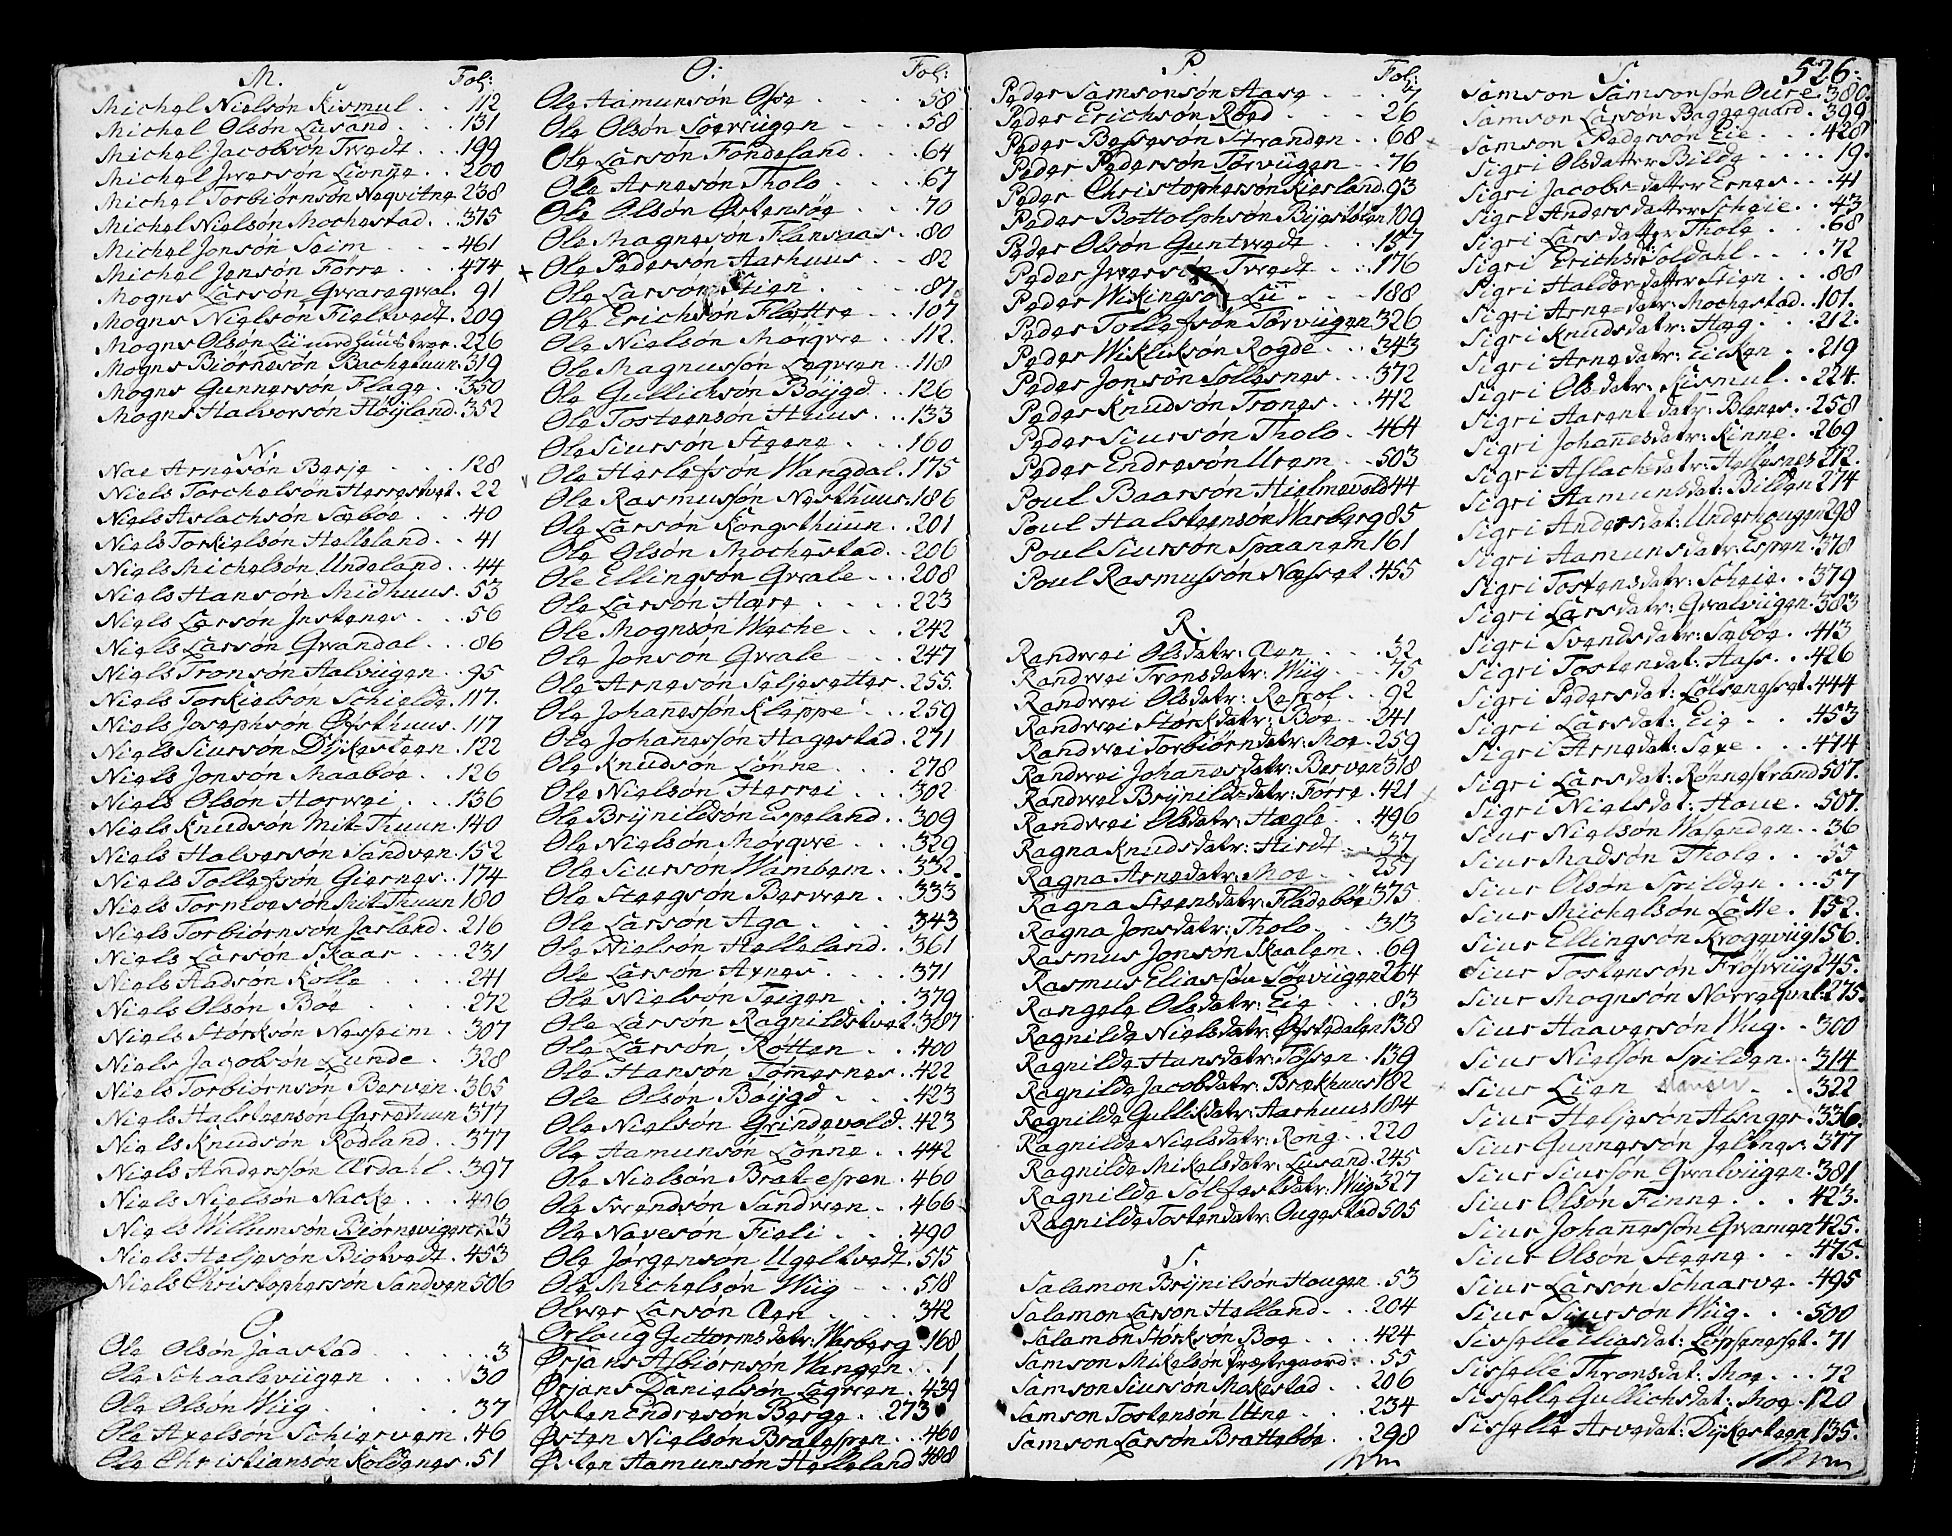 M. Fol:
Michel Nielsón Kismul . . 112
Michel Olsón Lusand . . . 131
Michel Jacobsón Twedt . . 199
Michel Iwersón Lionne . . 200
Michel Torbiörnsón Neqvitne 238
Michel Nielsón Mochestad . 375
Michel Jonsón Seim . . . 461
Michel Jensón Förre . . . 474
Mogns Larsón Gwaregwal . 91
Mogns Nielsón Fieltvedt . 209
Mogns Olsón 226
Mogns Biörnesón Bachetuun 319
Mogns Gunnersón Flage . . 350
Mogns Halvorsón Höyland . 352
N.
Nae Arnesón Berje . . . 128
Niels Torchelsón Herrestvet . 22
Niels Aslachsón Sæböe . . 40
Niels Torkielsón Helleland . . 41
Niels Michelsón Undeland . . 44
Niels Hansón Midhuus . 53
Niels Larsón Instenes . . 56
Niels Larsón Qwandal . . . 86
Niels Tronsón Aalviigen . . 95
Niels Torkielson Schielde . 117.
Niels Josephsón Östhuus . 117
Niels Siursón Dÿkesteen . 122
Niels Jonsón Maaböe . . . 126
Niels Olsón Horwei . . . 136
Niels Knudsón Mit-Thuun . 140
Niels Halversón Sandven . 152
Niels Tollefsón Giernes . . 174
Niels Tormoesón Mit-Thuun 180
Niels Torbiörnsón Jasland . 216
Niels Larsón Skaar . . . 231
Niels Aadsón Kolle . . . 241
Niels Olsón Boe . . . 272
Niels Störksón Nesseim . . 307
Niels Jacobsón Lunde . . 328
Niels Torbiörnsón Berven . 365
Niels Halsteensón Garrethuun 377
Niels Knudsón Rodland . . 377
Niels Andersón Ardahl . 397
Niels Nielsón Nacke . . . 406
Niels Willumsón Biörneviigen 423
Niels Heljesón Biotvedt . 453
Niels Christophersón Sandven 506
O
Ole Olsón Jaastad . . . 3
Ole Schaaleviigen . . . 30
Ole Olsón Wiig . . . . 37
Ole Axelsón Schiervem . . 46
Ole Christiansón Koldenes . 51
O: Fol:
Ole Aamunsón Ose . . . . 58
Ole Olsón Soerviigen . . . 58
Ole Larsón Fondeland . . . 64
Ole Arnesón Tholo . . . 67
Ole Olsón Östensöe . . . 70
Ole Magnesón Flansaas . . 80
Ole Pedersón Aarhuus . . 82
Ole Larson Stien . . . . 87
Ole Erichsón Flettre . . . 107
Ole Nielsón Mörqvre . . 112.
Ole Magnussón Legvren . 118
Ole Gullichsón Böygd . . 126
Ole Tosteensón Huus . . 133
Ole Siursón Steene . . . 160
Ole Herlefsón Wangdal . 175
Ole Rasmussón Nesthuus . 186
Ole Larsón Kongsthuun . . 201
Ole Olsón Mochestad . . 206
Ole Ellingsón Qwale . . . 208
Ole Larsón Haee . . . . 223
Ole Mognsón Weche . . . 242
Ole Jonsón Qwale . . . 247
Ole Arnesón Seljesetter . 255.
Ole Johannessón Kleppe . . 259
Ole Johannessón Hagestad . 271
Ole Knudsón Lönne . . . 278
Ole Nielsón Herrei . . . 302
Ole Brÿnildsón Espeland . . 309
Ole Nielsón Mörqvre . . . 329
Ole Siursón Wambem . . . 332.
Ole Steegsón Berven . . . 333
Ole Larsón Aga . . . . 343
Ole Nielsón Helleland . . 361
Ole Larsón Arnes . . . . 371
Ole Nielsón Teigen . . . 379
Ole Larsón Ragnildstvet . 387
Ole Larsón Rotten . . . 400
Ole Hansón Tomernes . . 422
Ole Olsón Böygd . . . 423
Ole Nielsón Grindevold . 423
Ole Aamunsón Lönne . . 442
Ole Nielsón Brat-espen . . 460
Ole Svendsón Sandven . . 466
Ole Navesón Fieli . . . 490
Ole Jörgensón Ugeltvedt . 515
Ole Michelsón Wiig . . . 518
Olwer Larsón Aen . . . . 342
Orlaug Guttormsdatr: Warberg 168
Örjans Asbiörnsón Wangen . 1
Örjans Danielsón Legvren . 439
Östen Endresón Berge . . 273
Östen Nielsón Bratespen . . 460
Östen Aamunsón Helleland 488
P. Fol:
Peder Samsonsón Aase . . . 7
Peder Erichsón Röed . . . 26
Peder Bessesón Stranden . . 68
Peder Pedersón Torviigen . . 76
Peder Christophersón Kierland . 93
Peder Bottolphsón Byestölen 109
Peder Olsón Guntwedt . . 157
Peder Iversón Twedt . . . 176
Peder Wikingsón Lii . . . 188
Peder Tollefsón Torviigen 326
Peder Wikliksón Rogde . . 343
Peder Jonsón Sollesnes . . 372
Peder Knudsón Trones . . 412
Peder Siursón Tholo . . 464
Peder Endresón Urem . . 503
Poul Baarsón Hielmevold 44
Poul Halsteensón Warberg 85
Poul Siursón Spaanem 161
Poul Rasmussón Nesset . 455
R.
Randwei Olsdatr: Aen . . . . 32
Randwei Tronsdatr: Wiig . . . 75
Randwei Olsdatr: Ressol . . 92
Randwei Störkdatr: Boe . . . 241
Randwei Torbiörndatr: Moe . 259
Randwei Johannesdatr: Berven 318
Randwei Brÿnildsdatr: Förre . 421
Randwei Olsdatr: Hægle . . 496
Ragna Knudsdatr: Hiedt . . 37
Ragna Arnedatr: Moe . . . 251
Ragna Steensdatr: Fladeböe 375
Ragna Jonsdatr: Tholo . . . 313
Rasmus Jonsón Skaalem . . 69
Rasmus Eliassón Söeviigen 264
Rangele Olsdatr: Eie . . . 83
Ragnilde Nielsdatr: Östedalen 138
Ragnilde Hansdatr: Tössen . 139
Ragnilde Jacobdatr: Brækhuus 182
Ragnilde Gullikdatr: Aarhuus 184
Ragnilde Nielsdatr: Rong . . 220
Ragnilde Mikelsdatr: Lusand . 245
Ragnilde Sölfestsdatr: Wiig 327
Ragnilde Tostendatr: Augestad 505
S.
Salamon Brÿnilsón Hougen . 53
Salamon Larsón Helland . . 204
Salamon Störksón Boe . . . 424
Samson Mikelsón Præstegaard . 55
Samson Siursón Mokestad . . 206
Samson Tostensón Utne . . . 234
Samson Larsón Bratteböe . . 298
526.
S.
Samson Samsonsón Oure . 380.
Samson Larsón Baggegaard . 399
Samson Pedersón Eie . . . 428
Sigri Olsdatter Bilde . . . . 19.
Sigri Jacobs-datter Ernes . . . 41
Sigri Andersdatter Scheie . . 43
Sigri Larsdatter Thole . . . 68
Sigri Erichsd: Soldahl . . . 72
Sigri Haldordatter Stien . . . 88
Sigri Arne-datr: Mochestad . 101.
Sigri Knudsdatr: Hæg . . . 212.
Sigri Arnedatr: Eicken . . . 219
Sigri Olsdatr: Kismul . . . 224.
Sigri Aarentdatr: Blenes . . 258
Sigri Johannesdatr: Kinne . . 269
Sigri Aslachdatr: Hellesnes 272.
Sigri Aamunsdat: Bilden 274
Sigri Andersdat: Underhougen 298
Sigri Aamunsdatr: Espen . 378
Sigri Tostensdatr: Scheie . . 379
Sigri Larsdatr: Qwalviigen . 383
Sigri Svendsdatr: Sæböe . . 413
Sigri Tostendat: Aass . . 426
Sigri Pedersdat: Lötsengset . 444
Sigri Larsdat: Eie . . . 453
Sigri Arnedat: Sexe . . . 474
Sigri Larsdat: Rönnestrand 507.
Sigri Nielsdat: Haue . . 507.
Siur Nielsón Wasenden . . 36
Siur Madsón Thole . . . 55
Siur Olsón Spilden . . . 57
Siur Michelsón Lötte . . 152.
Siur Ellingsón Krogeviig 156.
Siur Tostensón Frösviig 245.
Siur Mognsón Norreqval . 275.
Siur Haaversón Wiig . . 300
Siur Nielsón Spilden . . 314
Siur Lien . . 322
Siur Heljesón Alsager . 336.
Siur Gunnersón Jelenes . 377
Siur Siursón Qwalviigen . 381
Siur Olsón Finne . . . 423.
Siur Johannessón Qwamen 425.
Siur Olsón Steene . . . 475.
Siur Larsón Schaarve . . 495
Siur Siursón Wiig . . . 500
Sisselle Eliasdat: Löpsengset . 71
Sisselle Thronsdat: Moe . . 72
Sisselle Gullichsdat: Moe . 120
Sisselle Arvedat: Dÿkesteen 135.